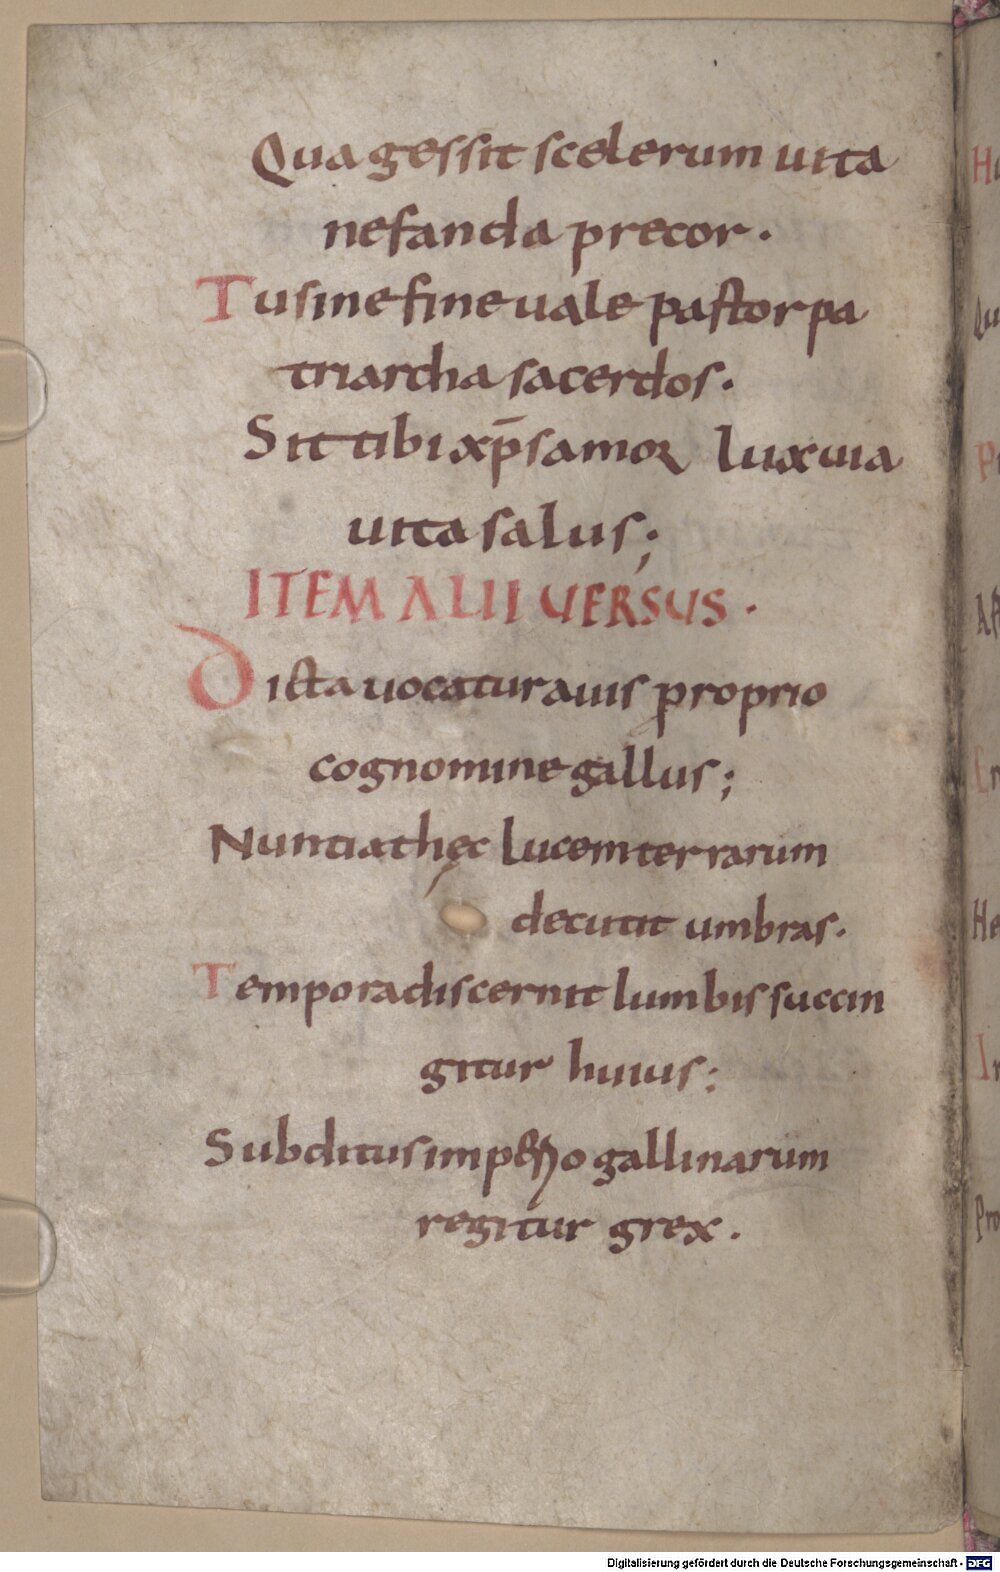 Qua gessit scelerum uita
nefanda precor.
Tu sine fine uale pastor pa
triarcha sacerdos.
Sit tibi xp̄s amor lux uia
uita salus;
ITEM ALII UERSUS.
Dicta uocatur auis proprio
cognomine gallus;
Nuntiat hęc lucem terrarum
decutit umbras.
Tempora discernit lumbis succin
gitur huius;
Subditus imperio gallinarum
regitur grex.
Digitalisierung gefördert durch die Deutsche Forschungsgemeinschaft - DFG